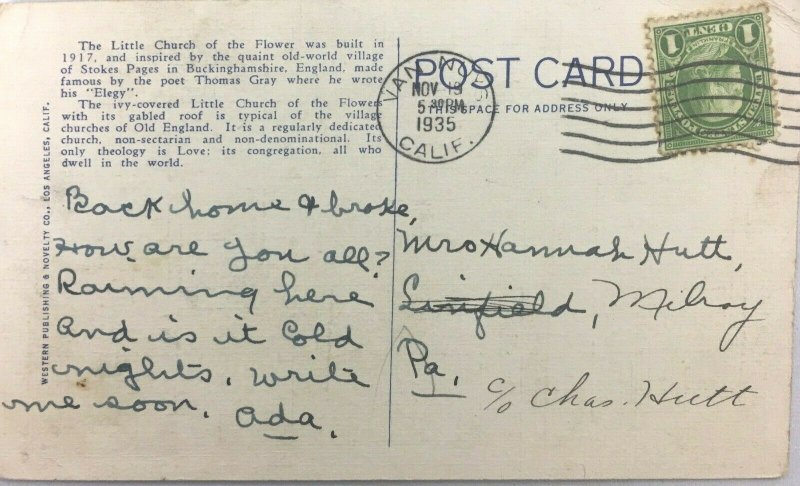 The Little Church of the Flower was built in
1917, and inspired by the quaint old-world village
of Stokes Pages in Buckinghamshire, England, made
famous by the poet Thomas Gray where he wrote
his "Elegy".
The ivy-covered Little Church of the Flowers
with its gabled roof is typical of the village
churches of Old England. It is a regularly dedicated
church, non-sectarian and non-denominational. Its
only theology is Love; its congregation, all who
dwell in the world.
WESTERN PUBLISHING & NOVELTY CO., LOS ANGELES, CALIF.
Back home & broke,
How are you all?
Raining here
and is it Cold
nights. Write
me soon. Ada.
POST CARD
THIS SPACE FOR ADDRESS ONLY
VAN NUYS
NOV 18
5 PM
1935
CALIF.
1 CENT 1
Mrs Hannah Hutt,
Linfield, Milroy
Pa.
c/o Chas. Hutt